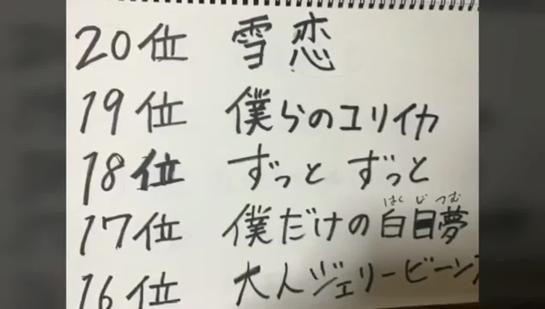 20位 雪恋
19位 僕らのユリイカ
18位 ずっと ずっと
はくじつむ
17位 僕だけの白日夢
16位 大人ジェリービーン